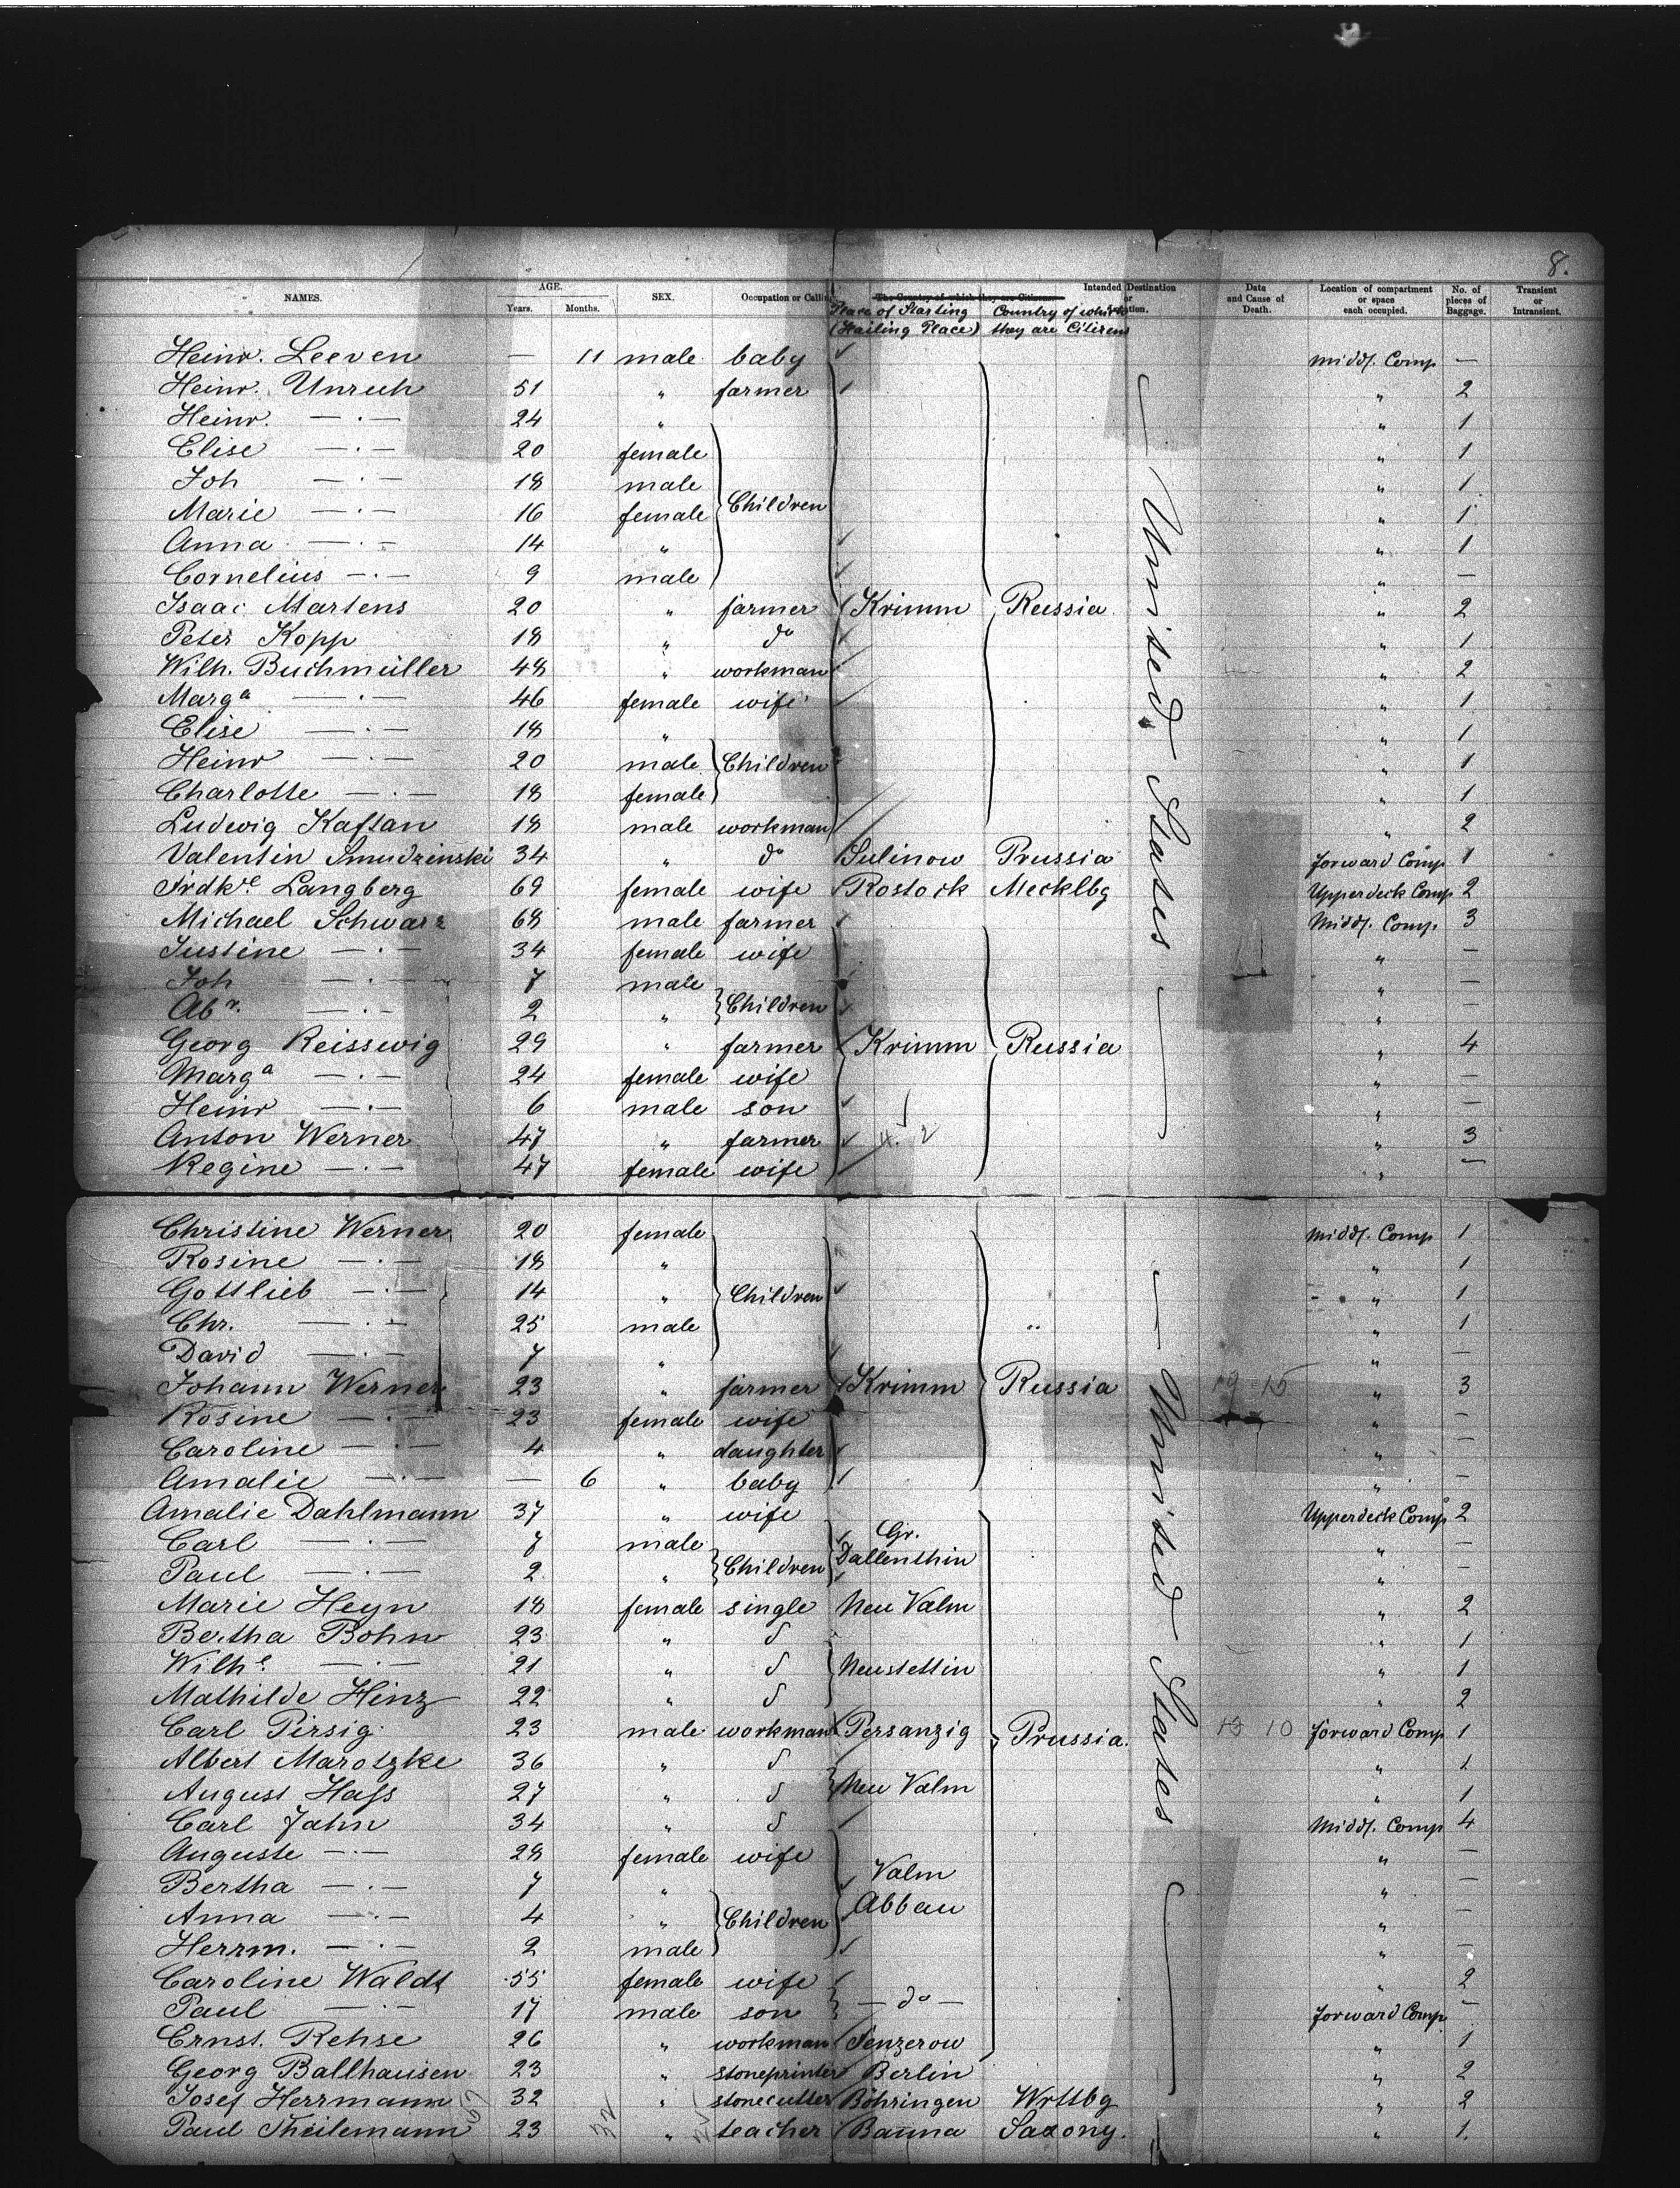 8.
NAMES. AGE. Years. Months. SEX. Occupation or Calling The Country of which they are Citizens Intended Destination or Date and Cause of Death. Location of compartment or space each occupied. No. of pieces of Baggage. Transient or Intransient.
Place of Starting (Hailing Place) Country of which they are Citizens
Heinr. Leeven — 11 male baby Middl. Comp —
Heinr. Unruh 51 " farmer " 2
Heinr. — · — 24 " " 1
Elise — · — 20 female " 1
Joh — · — 18 male " 1
Marie — · — 16 female Children " 1
Anna — · — 14 " " 1
Cornelius — · — 9 male " —
Isaac Martens 20 " farmer Krimm Russia " 2
Peter Kopp 18 " do " 1
Wilh. Buchmüller 48 " workman " 2
Marga — · — 46 female wife " 1
Elise — · — 18 " " 1
Heinr — · — 20 male Children " 1
Charlotte — · — 18 female " 1
Ludwig Kaftan 18 male workman " 2
Valentin Smudzinski 34 " do Sulinow Prussia forward Comp 1
Frdke Langberg 69 female wife Rostock Mecklbg Upperdeck Comp 2
Michael Schwarz 68 male farmer Middl. Comp. 3
Justine — · — 34 female wife " —
Joh — · — 7 male " —
Abr. — · — 2 " Children " —
Georg Reisswig 29 " farmer Krimm Russia " 4
Marga — · — 24 female wife " —
Heinr — · — 6 male son " —
Anton Werner 47 " farmer " 3
Regine — · — 47 female wife " —
United States
Christine Werner 20 female Middl. Comp 1
Rosine — · — 18 " " 1
Gottlieb — · — 14 " Children " 1
Chr. — · — 25 male " 1
David — · — 7 " " —
Johann Werner 23 " farmer Krimm Russia 19 15 " 3
Rosine — · — 23 female wife " —
Caroline — · — 4 " daughter " —
Amalie — · — — 6 " baby " —
Amalie Dahlmann 37 " wife Upperdeck Comp 2
Carl — · — 7 male Gr. Dallenthin " —
Paul — · — 2 " Children " —
Marie Heyn 18 female single Neu Valm " 2
Bertha Bohn 23 " d " 1
Wilhe. — · — 21 " d Neustettin " 1
Mathilde Hinz 22 " d " 2
Carl Pirsig 23 male workman Persanzig Prussia. 13 10 forward Comp 1
Albert Marotzke 36 " d " 1
August Hass 27 " d Neu Valm " 1
Carl Jahn 34 " d Middl. Comp 4
Auguste — · — 28 female wife " —
Bertha — · — 7 " Valm " —
Anna — · — 4 " Children Abbau " —
Herrm. — · — 2 male " —
Caroline Waldt 55 female wife " 2
Paul — · — 17 male son — do — forward Comp —
Ernst. Rehse 26 " workman Senzerow " 1
Georg Ballhausen 23 stoneprinter Berlin " 2
Josef Herrmann 32 " stonecutter Böhringen Wrttbg " 2
Paul Theilemann 23 " teacher Banna Saxony. " 1.
United States